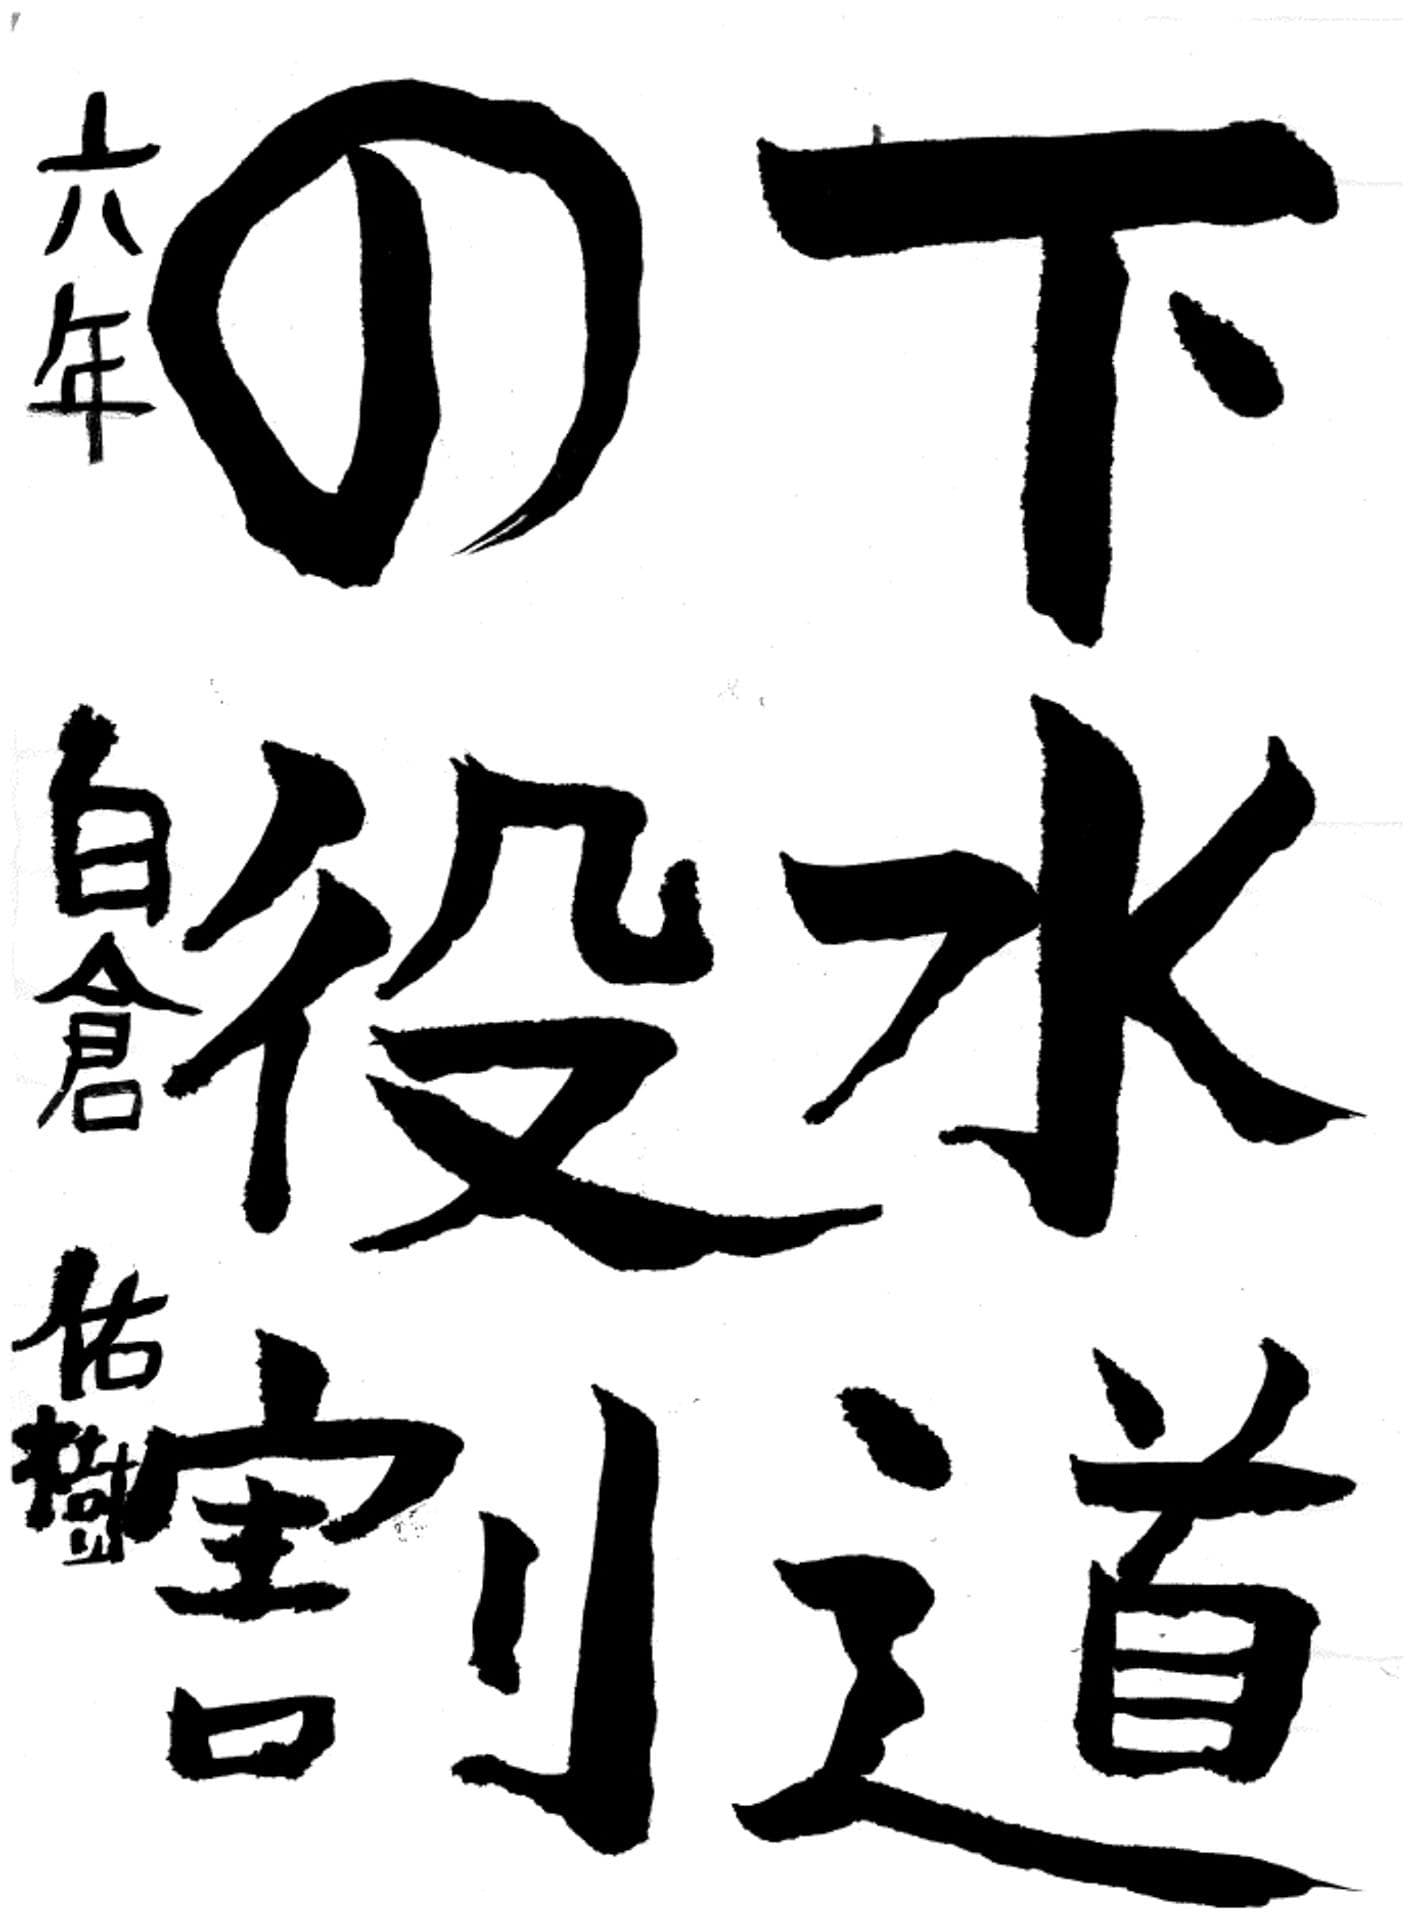 下水道
の役割
六年 白倉 佑樹